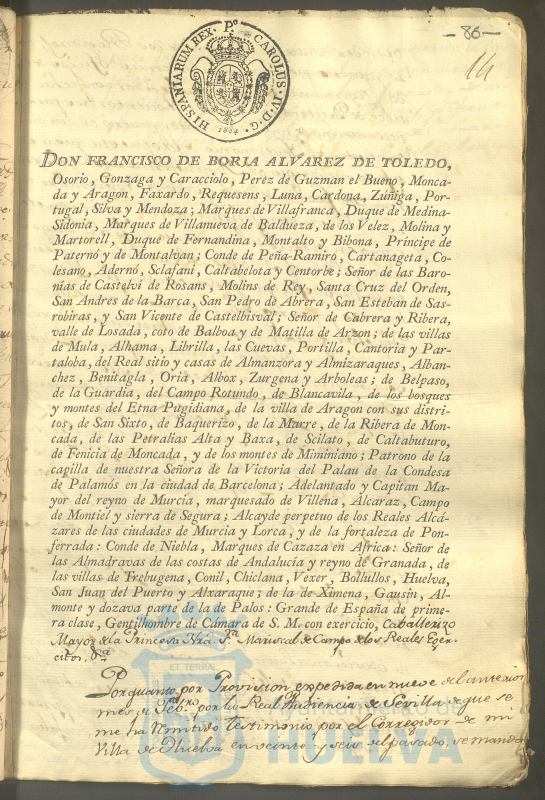 HISPANIARUM REX. P.º CAROLUS. IV. D. G.
1804
-86-
14
DON FRANCISCO DE BORJA ALVAREZ DE TOLEDO,
Osorio, Gonzaga y Caracciolo, Perez de Guzman el Bueno, Monca-
da y Aragon, Faxardo, Requesens, Luna, Cardona, Zuñiga, Por-
tugal, Silva y Mendoza; Marques de Villafranca, Duque de Medina-
Sidonia, Marques de Villanueva de Baldueza, de los Velez, Molina y
Martorell, Duque de Fernandina, Montalto y Bibona, Príncipe de
Paternó y de Montalvan; Conde de Peña-Ramiro, Cartanageta, Co-
lesano, Adernó, Sclafani, Caltabelota y Centorbe; Señor de las Baro-
nías de Castelví de Rosans, Molins de Rey, Santa Cruz del Orden,
San Andres de la Barca, San Pedro de Abrera, San Esteban de Sas-
robiras, y San Vicente de Castelbisval; Señor de Cabrera y Ribera,
valle de Losada, coto de Balboa y de Matilla de Arzon; de las villas
de Mula, Alhama, Librilla, las Cuevas, Portilla, Cantoria y Par-
taloba, del Real sitio y casas de Almanzora y Almizaraques, Alban-
chez, Benitagla, Oria, Albox, Zurgena y Arboleas; de Belpaso,
de la Guardia, del Campo Rotundo, de Blancavila, de los bosques
y montes del Etna Pugidiana, de la villa de Aragon con sus distri-
tos, de San Sixto, de Baquerizo, de la Marre, de la Ribera de Mon-
cada, de las Petralias Alta y Baxa, de Scilato, de Caltabuturo,
de Fenicia de Moncada, y de los montes de Miminiano; Patrono de la
capilla de nuestra Señora de la Victoria del Palau de la Condesa
de Palamós en la ciudad de Barcelona; Adelantado y Capitan Ma-
yor del reyno de Murcia, marquesado de Villena, Alcaraz, Campo
de Montiel y sierra de Segura; Alcayde perpetuo de los Reales Alcá-
zares de las ciudades de Murcia y Lorca, y de la fortaleza de Pon-
ferrada: Conde de Niebla, Marques de Cazaza en Africa: Señor de
las Almadravas de las costas de Andalucía y reyno de Granada, de
las villas de Trebugena, Conil, Chiclana, Vexer, Bollullos, Huelva,
San Juan del Puerto y Alxaraque; de la de Ximena, Gausin, Al-
monte y dozava parte de la de Palos: Grande de España de prime-
ra clase, Gentilhombre de Cámara de S. M. con exercicio, Caballerizo
Mayor de la Princesa Nra. S.ra Mariscal de Campo de los Reales Egér-
citos, &.a
Por quanto por Provision expedida en nueve del anterior
mes de Febro. por la Real Audiencia de Sevilla de que se
me ha remitido testimonio por el Corregidor de mi
Villa de Huelva en veinte y seis del pasado, se manda
ET TERRAE
HUELVA